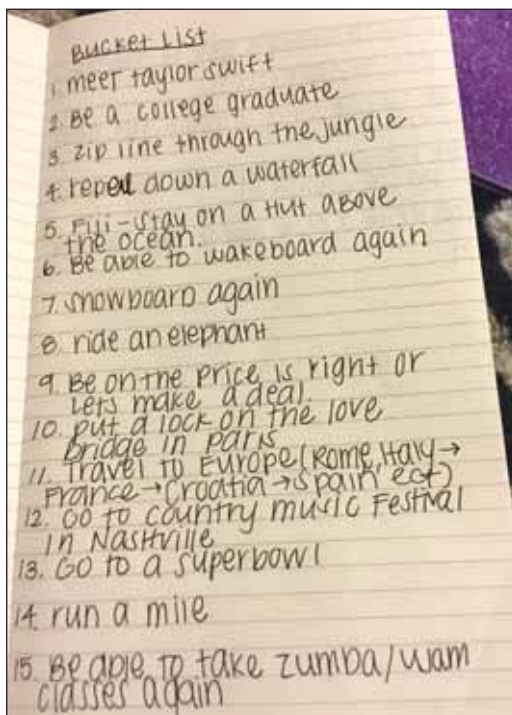 Bucket List
1. meet taylor swift
2. Be a college graduate
3. zip line through the jungle
4. repel down a waterfall
5. Fiji - stay on a Hut above
the ocean.
6. Be able to wakeboard again
7. snowboard again
8. ride an elephant
9. Be on the Price is right or
Lets make a deal.
10. put a lock on the love
bridge in paris
11. Travel to Europe (Rome, Italy →
France → Croatia → Spain ect)
12. Go to country music Festival
in Nashville
13. Go to a superbowl
14. run a mile
15. Be able to take zumba/wam
classes again